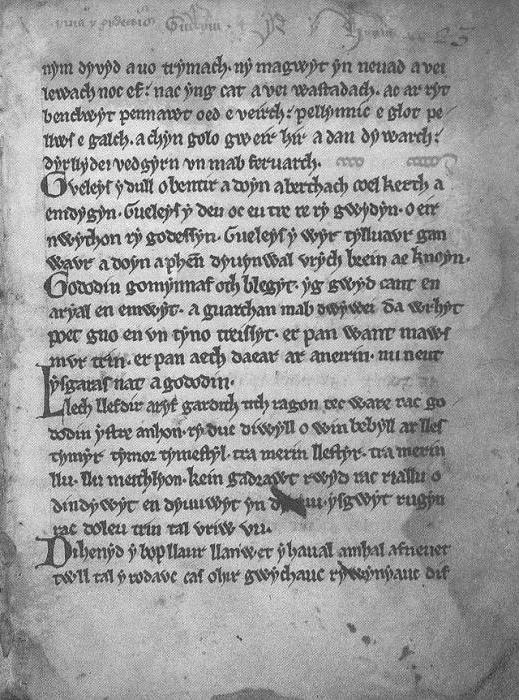 25
nym dyvyd a uo trymach. ny magwyt yn neuad a vei
lewach noc ef. nac yng cat a vei wastadach. ac ar ryt
benclwyt pennawt oed e veirch. pellynnic e glot pe
llws e galch. a chyn golo gweir hir a dan dywarch.
dyrllydei vedgyrn vn mab feruarch.
Gueleys y dull o bentir a doyn aberthach coel kerth a
emdygyn. Gueleys y deu oc eu tre re ry gwydyn. o eir
nwython ry godessyn. Gueleys y wyr tylluavr gan
wavr a doyn a phen dyuynwal vrych brein ae knoyn.
Gododin gomynnaf oth blegyt. yg gwyd cant en
aryal en emwyt. a guarchan mab dwywei da wrhyt
poet gno en vn tyno treissyt. er pan want maws
mvr trin. er pan aeth daear ar aneirin. nu neut
ysgaras nat a gododin.
Llech llefdir aryf gardith tith ragon tec ware rac go
dodin ystre anhon. ry duc diwyll o win bebyll ar lles
tymyr tymor tymestyl. tra merin llestyr. tra merin
llu. llu meithlyon. kein gadrawt rwyd rac riallu o
dindywyt en dyuuwyt yn ysgwyt rugyn
rac doleu trin tal vriw vu.
Dihenyd y bop llaur llanwet y haual amhal afneuet
twll tal y rodavc cas ohir gwychauc rywynyauc dif